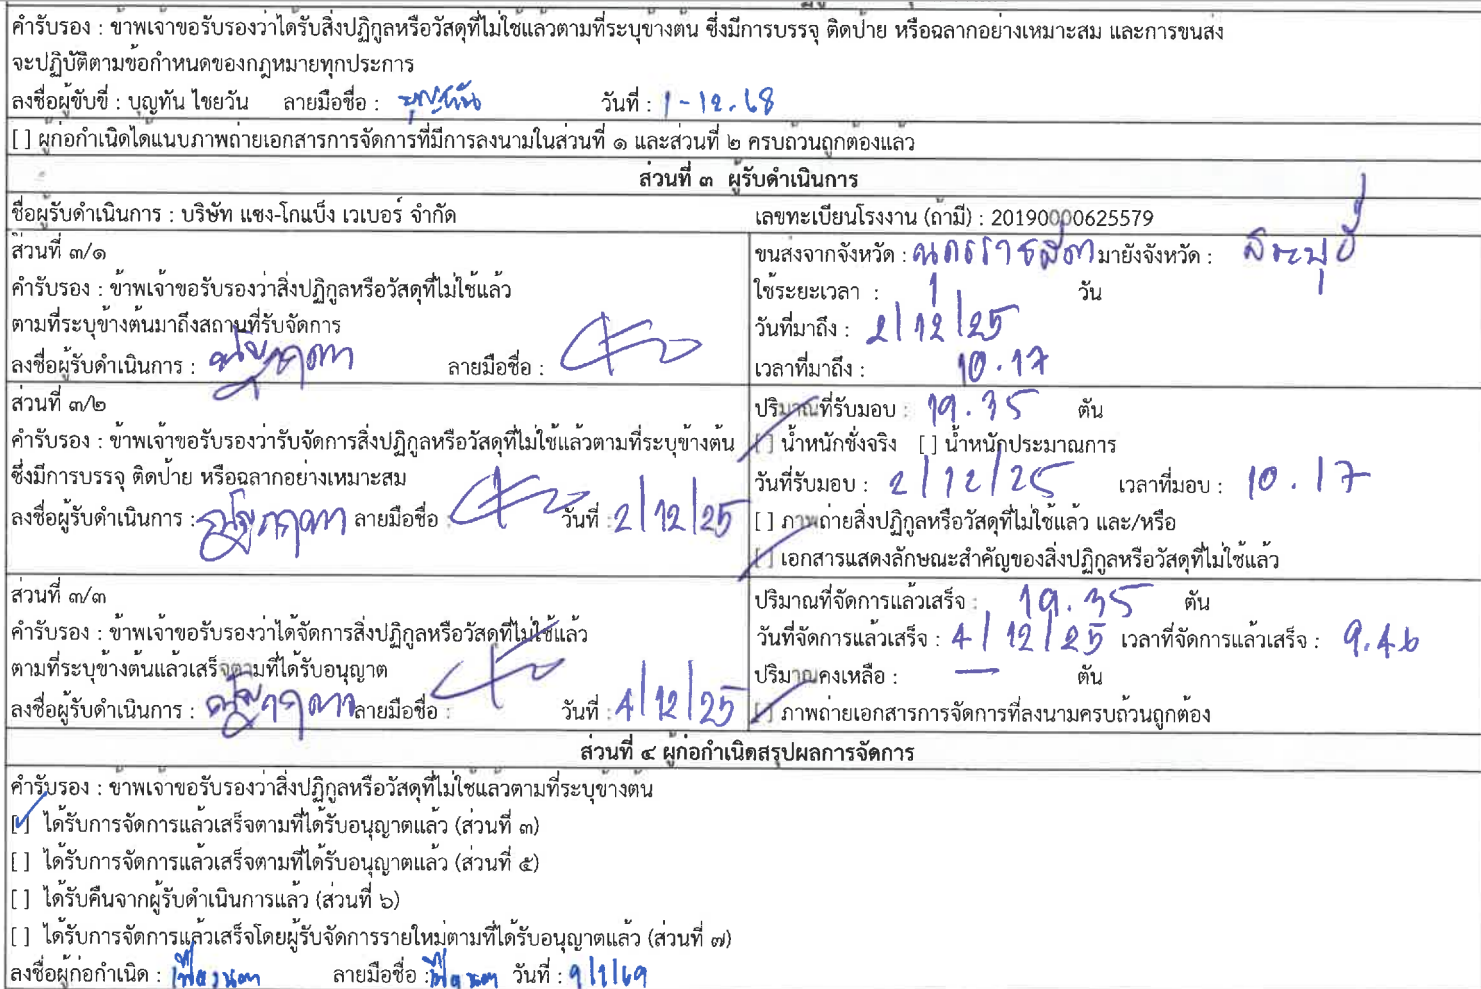 คำรับรอง : ข้าพเจ้าขอรับรองว่าได้รับสิ่งปฏิกูลหรือวัสดุที่ไม่ใช้แล้วตามที่ระบุข้างต้น ซึ่งมีการบรรจุ ติดป้าย หรือฉลากอย่างเหมาะสม และการขนส่ง
จะปฏิบัติตามข้อกำหนดของกฎหมายทุกประการ
ลงชื่อผู้ขับขี่ : บุญทัน ไชยวัน ลายมือชื่อ : บุญทัน วันที่ : 1-12.68
[ ] ผู้ก่อกำเนิดได้แนบภาพถ่ายเอกสารการจัดการที่มีการลงนามในส่วนที่ ๑ และส่วนที่ ๒ ครบถ้วนถูกต้องแล้ว
ส่วนที่ ๓ ผู้รับดำเนินการ
ชื่อผู้รับดำเนินการ : บริษัท แซง-โกแบ็ง เวเบอร์ จำกัด เลขทะเบียนโรงงาน (ถ้ามี) : 20190000625579
ส่วนที่ ๓/๑
คำรับรอง : ข้าพเจ้าขอรับรองว่าสิ่งปฏิกูลหรือวัสดุที่ไม่ใช้แล้ว
ตามที่ระบุข้างต้นมาถึงสถานที่รับจัดการ
ลงชื่อผู้รับดำเนินการ : ลายมือชื่อ :
ขนส่งจากจังหวัด : นครราชสีมา มายังจังหวัด : สระบุรี
ใช้ระยะเวลา : 1 วัน
วันที่มาถึง : 2/12/25
เวลาที่มาถึง : 10.17
ส่วนที่ ๓/๒
คำรับรอง : ข้าพเจ้าขอรับรองว่ารับจัดการสิ่งปฏิกูลหรือวัสดุที่ไม่ใช้แล้วตามที่ระบุข้างต้น
ซึ่งมีการบรรจุ ติดป้าย หรือฉลากอย่างเหมาะสม
ลงชื่อผู้รับดำเนินการ : ลายมือชื่อ : วันที่ : 2/12/25
ปริมาณที่รับมอบ : 19.35 ตัน
[ ] น้ำหนักชั่งจริง [ ] น้ำหนักประมาณการ
วันที่รับมอบ : 2/12/25 เวลาที่มอบ : 10.17
[ ] ภาพถ่ายสิ่งปฏิกูลหรือวัสดุที่ไม่ใช้แล้ว และ/หรือ
[ ] เอกสารแสดงลักษณะสำคัญของสิ่งปฏิกูลหรือวัสดุที่ไม่ใช้แล้ว
ส่วนที่ ๓/๓
คำรับรอง : ข้าพเจ้าขอรับรองว่าได้จัดการสิ่งปฏิกูลหรือวัสดุที่ไม่ใช้แล้ว
ตามที่ระบุข้างต้นแล้วเสร็จตามที่ได้รับอนุญาต
ลงชื่อผู้รับดำเนินการ : ลายมือชื่อ : วันที่ : 4/12/25
ปริมาณที่จัดการแล้วเสร็จ : 19.35 ตัน
วันที่จัดการแล้วเสร็จ : 4/12/25 เวลาที่จัดการแล้วเสร็จ : 9.46
ปริมาณคงเหลือ : — ตัน
[ ] ภาพถ่ายเอกสารการจัดการที่ลงนามครบถ้วนถูกต้อง
ส่วนที่ ๔ ผู้ก่อกำเนิดสรุปผลการจัดการ
คำรับรอง : ข้าพเจ้าขอรับรองว่าสิ่งปฏิกูลหรือวัสดุที่ไม่ใช้แล้วตามที่ระบุข้างต้น
[✓] ได้รับการจัดการแล้วเสร็จตามที่ได้รับอนุญาตแล้ว (ส่วนที่ ๓)
[ ] ได้รับการจัดการแล้วเสร็จตามที่ได้รับอนุญาตแล้ว (ส่วนที่ ๕)
[ ] ได้รับคืนจากผู้รับดำเนินการแล้ว (ส่วนที่ ๖)
[ ] ได้รับการจัดการแล้วเสร็จโดยผู้รับจัดการรายใหม่ตามที่ได้รับอนุญาตแล้ว (ส่วนที่ ๗)
ลงชื่อผู้ก่อกำเนิด : ลายมือชื่อ : วันที่ : 9/1/69